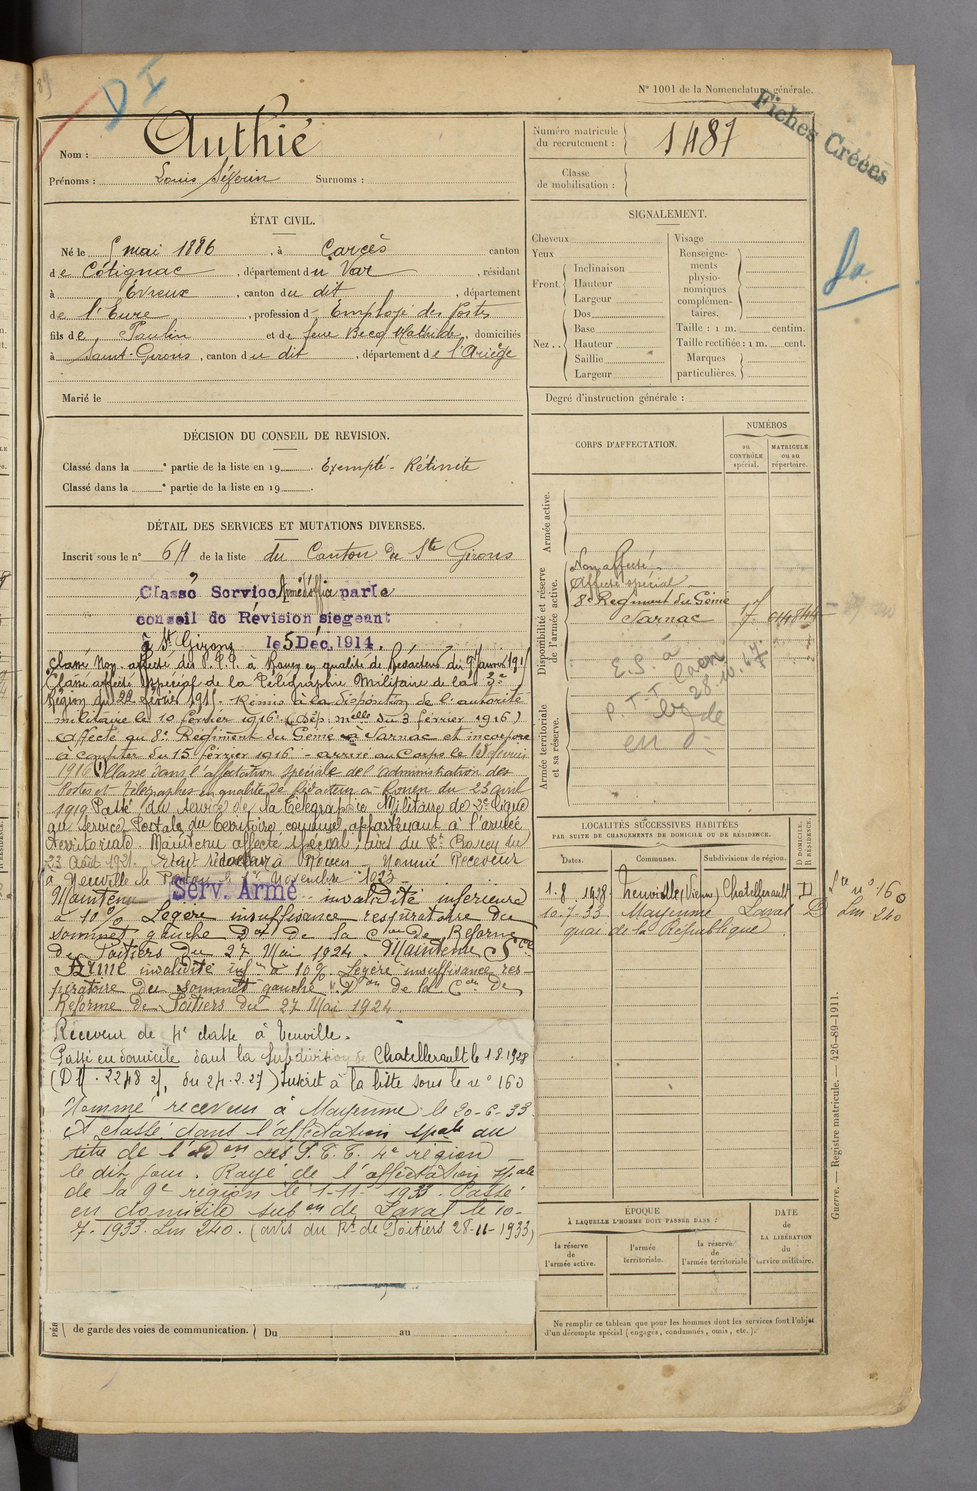 89
D I
N° 1001 de la Nomenclature générale.
Fiches Créées
Nom : Authié
Prénoms : Louis Séverin Surnoms :
Numéro matricule du recrutement : 1487
Classe de mobilisation :
ÉTAT CIVIL.
Né le 5 mai 1886, à Carcès canton
de Cotignac, département du Var, résidant
à Evreux, canton du dit, département
de l'Eure, profession d- Employé des Postes
fils de Paulin et de feue Becq Mathilde, domiciliés
à Saint-Girons, canton du dit, département de l'Ariège
Marié le
SIGNALEMENT.
Cheveux
Yeux
Front. Inclinaison
Hauteur
Largeur
Nez .. Dos
Base
Hauteur
Saillie
Largeur
Visage
Renseignements physionomiques complémentaires.
Taille : 1 m. centim.
Taille rectifiée : 1 m. cent.
Marques particulières.
Degré d'instruction générale :
DÉCISION DU CONSEIL DE REVISION.
Classé dans la e partie de la liste en 19 . Exempté - Rétinite
Classé dans la e partie de la liste en 19 .
DÉTAIL DES SERVICES ET MUTATIONS DIVERSES.
Inscrit sous le n° 64 de la liste du Canton de St Girons
Classé Service Armé d'office par le
conseil de Révision siegeant
à St Girons le 5 Déc. 1914.
Classé Non affecté du à Rouen en qualité de Rédacteur du 9 Janvier
Classé affecté spécial de la Télégraphie Militaire de la 3e
Région du 22 février 191 . Remis à la disposition de l'autorité
militaire le 10 février 1916. (Dép. mlle du 3 février 1916)
Affecté au 8e Régiment du Génie à Sarnac et incorporé
à compter du 15 février 1916 - arrivé au Corps le 18 février
1916 Classé dans l'affectation spéciale de l'administration des
Postes et Télégraphes en qualité de Rédacteur à Rouen du 23 avril
1919 Passé du service de la télégraphie Militaire de 2e ligne
au service Postale du territoire continué appartenant à l'armée
territoriale. Maintenu affecté spécial : avis du Rt Rouen du
23 Août 1921. Etait rédacteur à Rouen - Nommé Receveur
à Neuville de Poitou le 1er Novembre 1923
Maintenu Serv. Armé invalidité inférieure
à 10 % Légère insuffisance respiratoire du
sommet gauche Don de la Con de Réforme
de Poitiers du 27 Mai 1924. Maintenu Sce
Armé invalidité infre à 10 % Légère insuffisance res-
piratoire du sommet gauche Don de la Con de
Réforme de Poitiers du 27 Mai 1924
Receveur de 4e classe à Neuville.
Passé en domicile dans la Subdivision de Chatellerault le 1.8.1928
(DM. 2248 2/, du 24.2.27) Inscrit à la liste sous le n° 160
Nommé receveur à Mayenne le 20-6-33
et classé dans l'affectation spale au
titre de l'adon des P.T.T. 4e région
le dit jour. Rayé de l'affectation spale
de la 9e région le 1-11-1933. Passé
en domicile subon de Laval le 10-
7-1933. Lm 240. (avis du Rt de Poitiers 28-11-1933)
de garde des voies de communication. Du au
CORPS D'AFFECTATION.
NUMÉROS
au CONTRÔLE spécial.
MATRICULE ou au répertoire.
Armée active.
Disponibilité et réserve de l'armée active.
Non affecté
Affecté spécial
8e Régiment du Génie
Sarnac 14844
E.S. à Caen
P.T.T. 28.10.47
Armée territoriale et sa réserve.
LOCALITÉS SUCCESSIVES HABITÉES
PAR SUITE DE CHANGEMENTS DE DOMICILE OU DE RÉSIDENCE.
Dates. Communes. Subdivisions de région. D DOMICILE. R RÉSIDENCE.
1.8.1928 Neuville (Vienne) Chatellerault D Lre n° 160
10.7.33 Mayenne Laval D Lm 240
quai de la République
ÉPOQUE
À LAQUELLE L'HOMME DOIT PASSER DANS :
la réserve de l'armée active.
l'armée territoriale.
la réserve de l'armée territoriale
DATE de LA LIBÉRATION du service militaire.
Ne remplir ce tableau que pour les hommes dont les services font l'objet
d'un décompte spécial (engagés, condamnés, omis, etc.).
Guerre. — Registre matricule. — 426-89-1911.